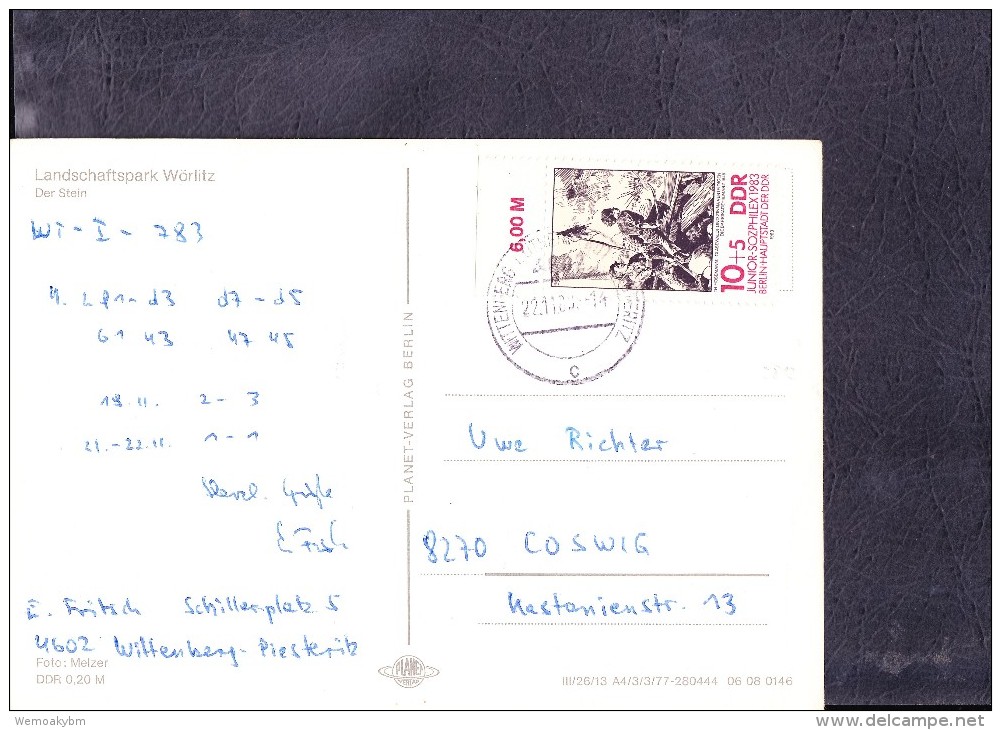 Landschaftspark Wörlitz
Der Stein
WT-I-783
4. Lg1-d3 d7-d5
61 43 47 45
19.11. 2-3
21.-22.11. 1-1
Grüße
E. Fritsch Schillerplatz 5
4602 Wittenberg-Piesteritz
Foto: Melzer
DDR 0,20 M
PLANET-VERLAG BERLIN
6,00 M
10+5 DDR
JUNIOR-SOZPHILEX 1983
BERLIN·HAUPTSTADT DER DDR
1983
WITTENBERG
22.11.83.-14
c
Uwe Richter
8270 COSWIG
Kastanienstr. 13
PLANET
VERLAG
III/26/13 A4/3/3/77-280444 06 08 0146
Wemoakybm
www.delcampe.net